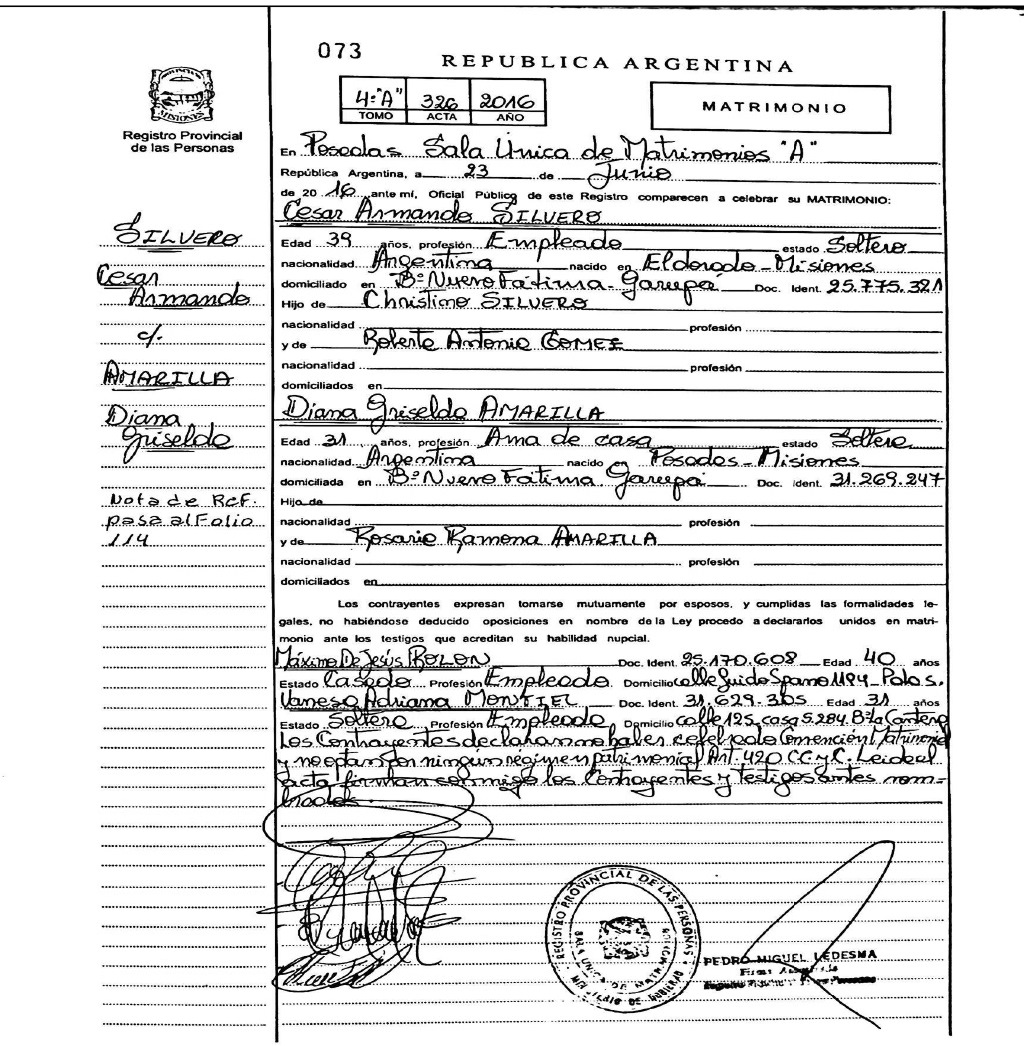 073
REPUBLICA ARGENTINA
PROVINCIA DE MISIONES
Registro Provincial
de las Personas
4:"A" 326 2016
TOMO ACTA AÑO
MATRIMONIO
En Posadas Sala Única de Matrimonios "A"
República Argentina, a 23 de Junio
de 2016 ante mí, Oficial Público de este Registro comparecen a celebrar su MATRIMONIO:
Cesar Armando SILVERO
Edad 39 años, profesión Empleado estado Soltero
nacionalidad Argentina nacido en Eldorado - Misiones
domiciliado en B° Nuevo Fátima - Garupá Doc. Ident. 25.775.321
Hijo de Christino SILVERO
nacionalidad profesión
y de Roberto Antonio GOMEZ
nacionalidad profesión
domiciliados en
Diana Griselda AMARILLA
Edad 31 años, profesión Ama de casa estado Soltera
nacionalidad Argentina nacido en Posadas - Misiones
domiciliada en B° Nuevo Fátima Garupá Doc. Ident. 31.269.247
Hijo de
nacionalidad profesión
y de Rosario Ramona AMARILLA
nacionalidad profesión
domiciliados en
Los contrayentes expresan tomarse mutuamente por esposos, y cumplidas las formalidades le-
gales, no habiéndose deducido oposiciones en nombre de la Ley procedo a declararlos unidos en matri-
monio ante los testigos que acreditan su habilidad nupcial.
Máximo De Jesús ROLON Doc. Ident. 25.170.608 Edad 40 años
Estado Casado Profesión Empleado Domicilio calle Guido Spano 1194 - Pdas.
Vanesa Adriana MONTIEL Doc. Ident. 31.629.305 Edad 31 años
Estado Soltera Profesión Empleada Domicilio calle 125 casa 5.284 B° La Cantera
Los Contrayentes declaran no haber celebrado Convención Matrimonial
y no optan por ningún régimen patrimonial Art. 420 CC. y C. Leida el
acta firman conmigo los Contrayentes y testigos antes nom-
brados.
SILVERO
Cesar
Armando
c/.
AMARILLA
Diana
Griselda
Nota de Ref.
pasa al Folio
114
REGISTRO PROVINCIAL DE LAS PERSONAS
SALA UNICA DE MATRIMONIOS
PEDRO MIGUEL LEDESMA